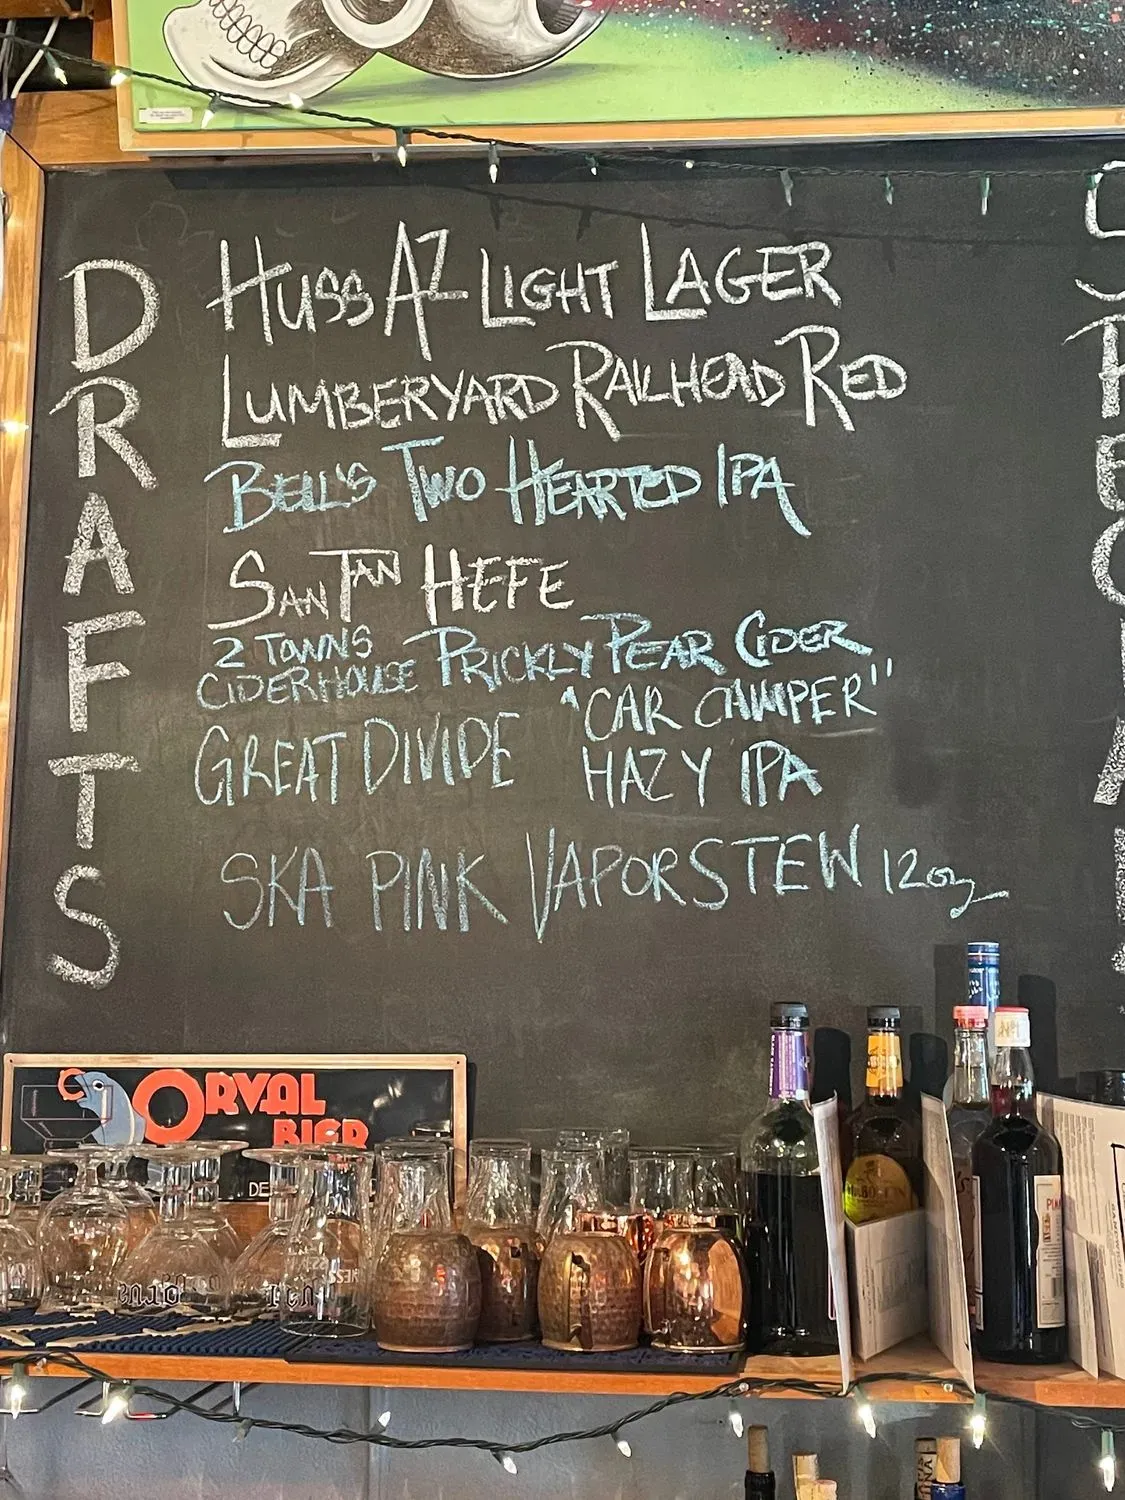 DRAFTS
HUSS AZ LIGHT LAGER
LUMBERYARD RAILHEAD RED
BELL'S TWO HEARTED IPA
SAN TAN HEFE
2 TOWNS
CIDERHOUSE PRICKLY PEAR CIDER
GREAT DIVIDE "CAR CAMPER"
HAZY IPA
SKA PINK VAPORSTEW 12oz
ORVAL
BIER